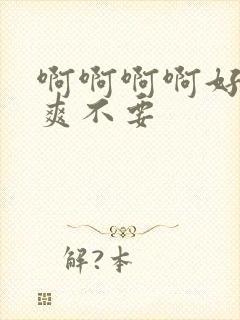 啊啊啊啊好
爽不要
解?本